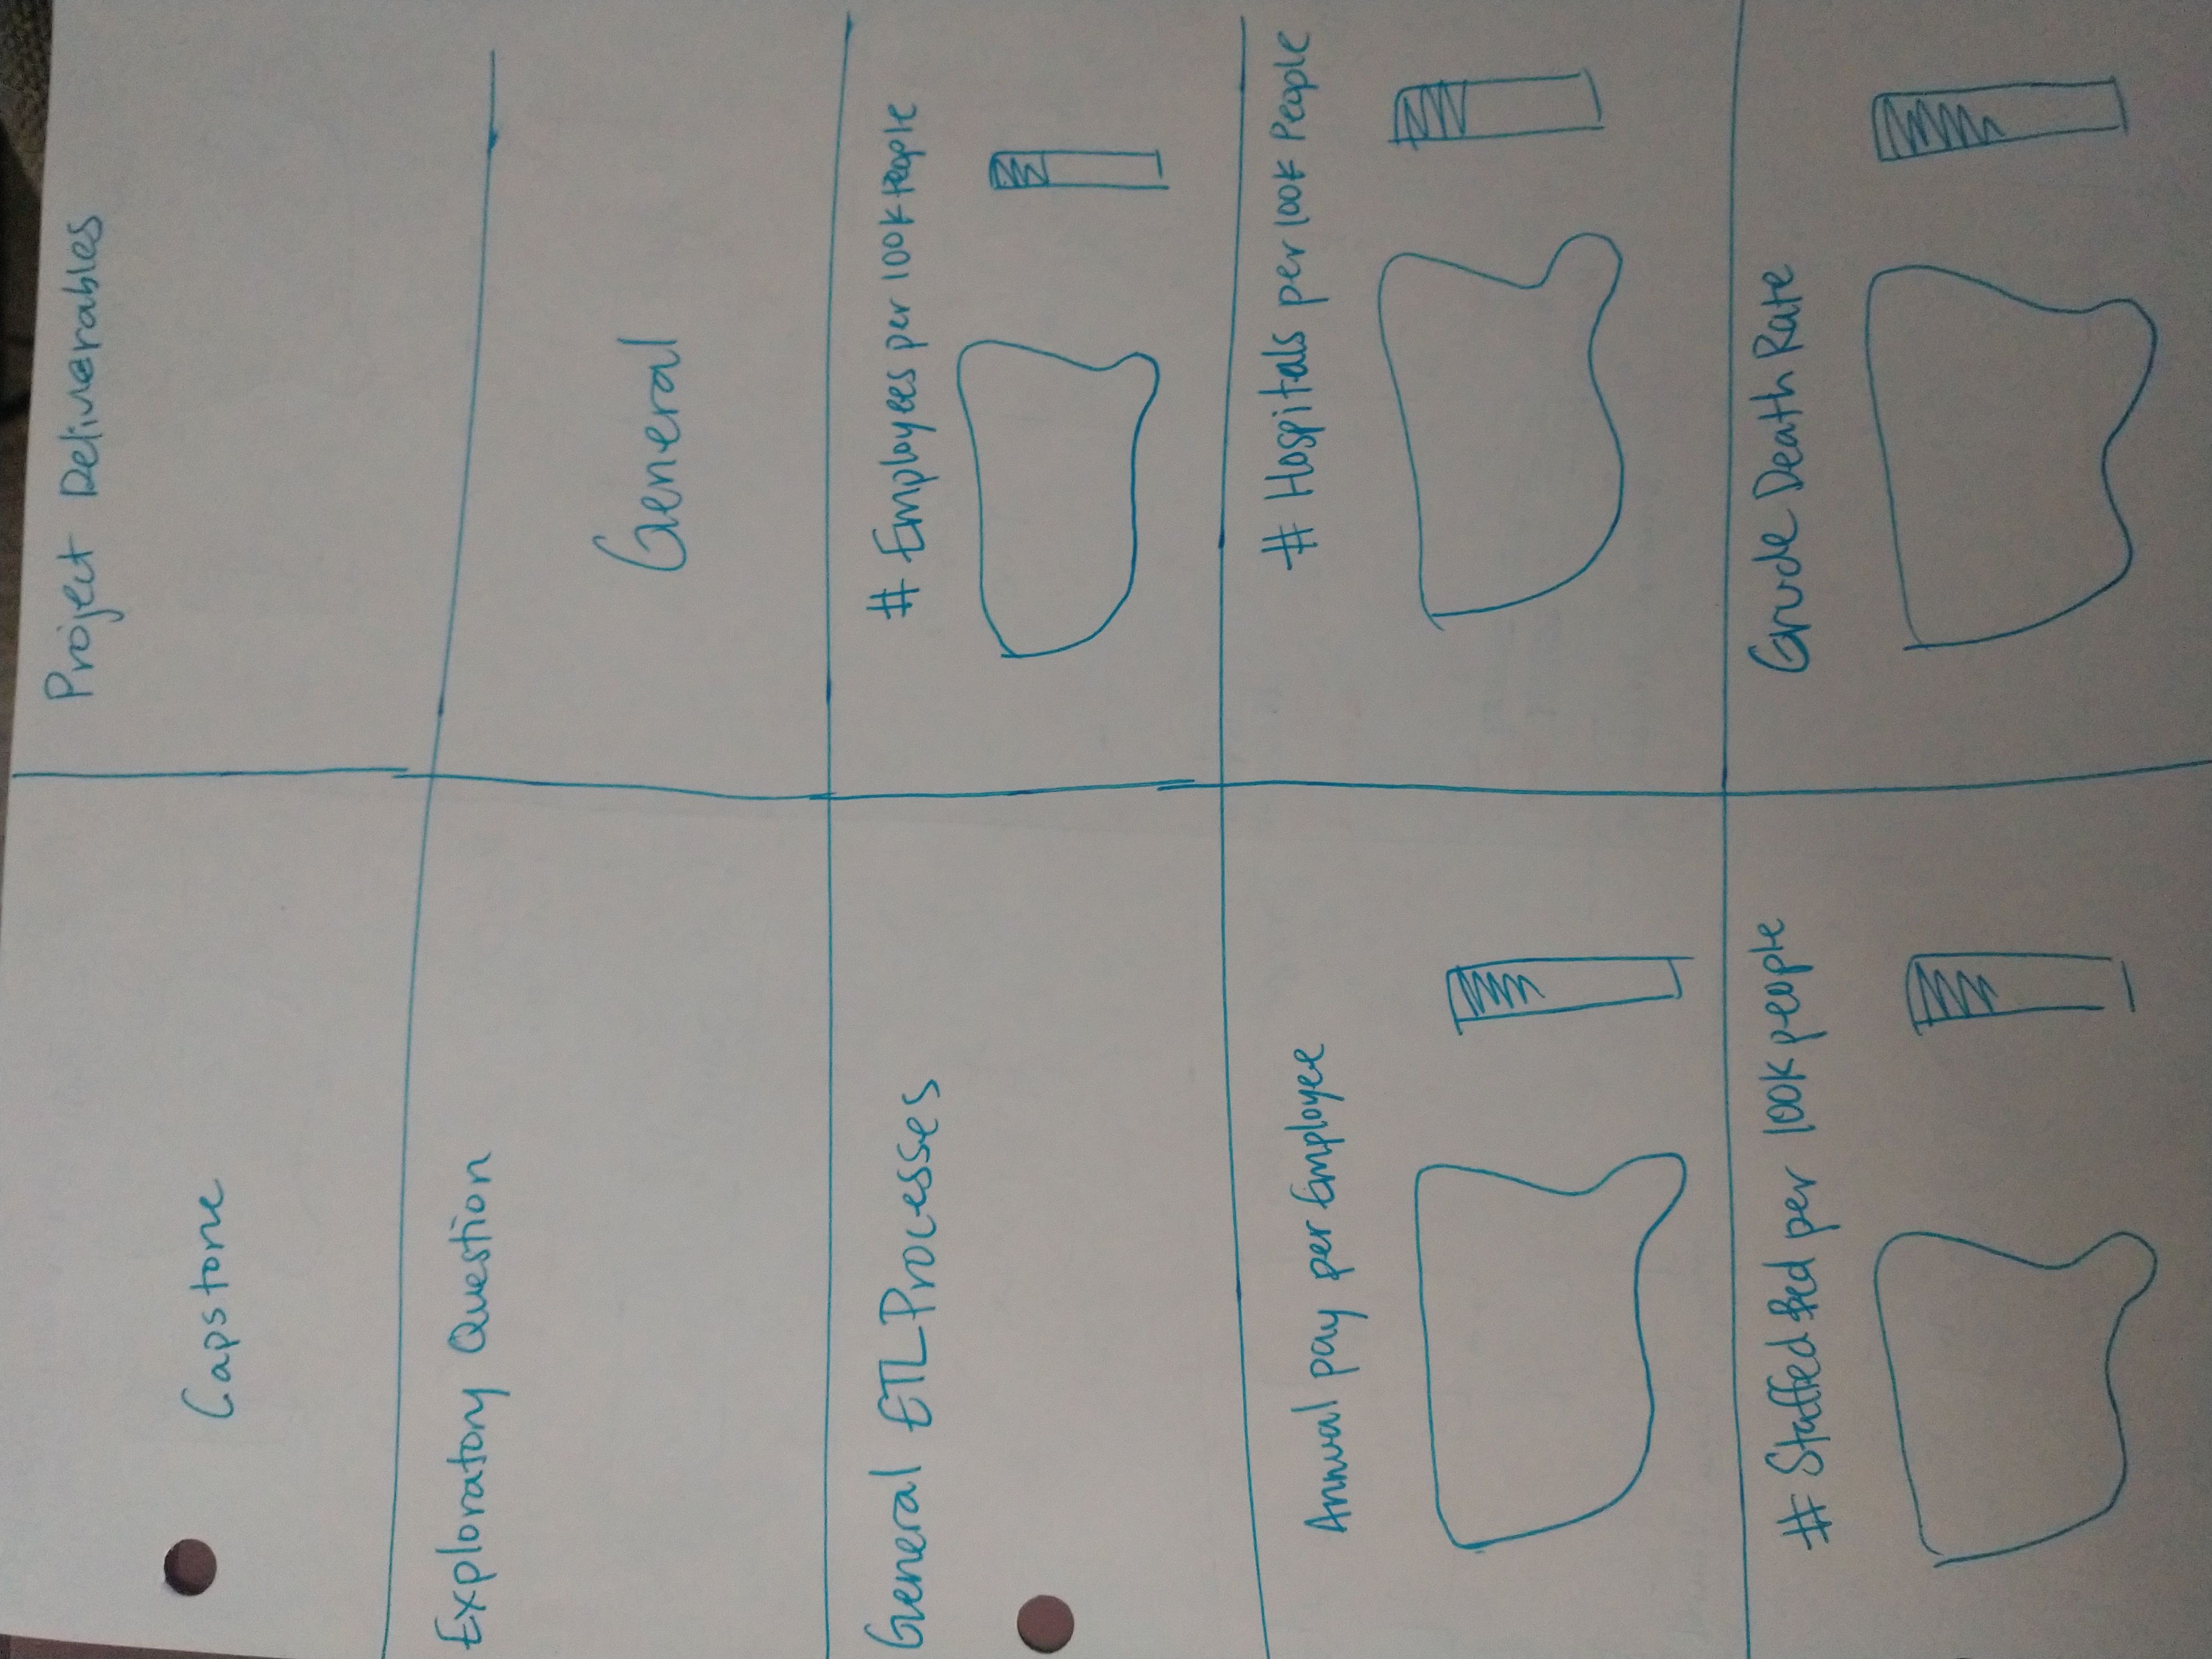 Capstone
Project Deliverables
Exploratory Question
General
General ETL Processes
# Employees per 100k People
Annual pay per Employee
# Hospitals per 100k People
# Staffed Bed per 100k people
Crude Death Rate